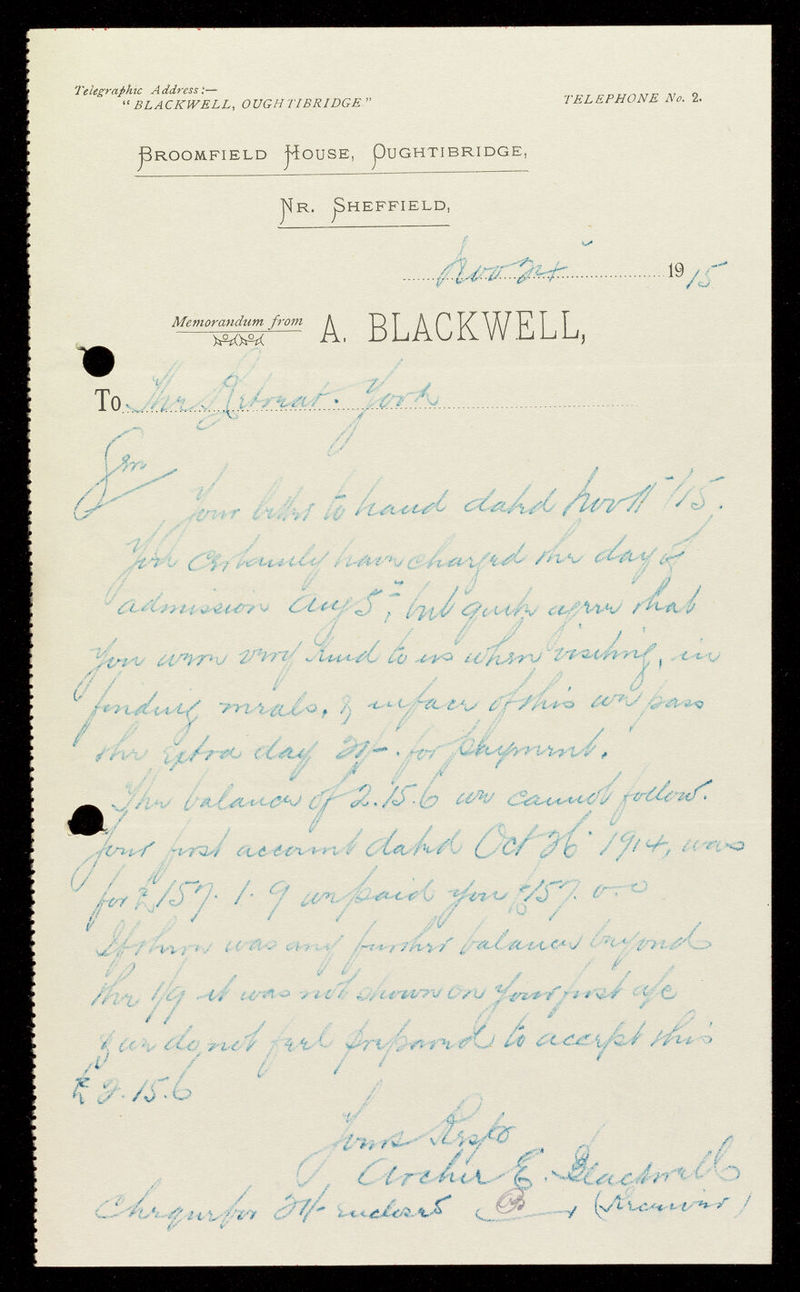 Telegraphic Address:—
"BLACKWELL, OUGHTIBRIDGE."
TELEPHONE No. 2.
BROOMFIELD HOUSE, OUGHTIBRIDGE,
NR. SHEFFIELD,
Nov 24 1915
Memorandum from A. BLACKWELL,
To The Retreat. York
Your letter to hand dated Nov 11/15.
You certainly have charged the day of
admission Aug 5th, but quite agree that
you were very kind to us when visiting, in
finding meals, & in face of this we pass
the extra day 24/- for payment.
The balance of 2.15.6 we cannot follow.
Your first account dated Oct 26 1914, was
for £157. 1. 9 we paid you £157. 0-0
If there was any further balance beyond
the 1/9 it was not shown on your first a/c
& we do not feel prepared to accept this
£2.15.6
Yours Respy
Archer E. Blackwell
Cheque for 24/- enclosed (Receiver)